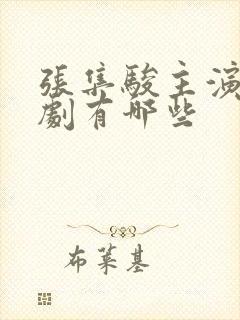 張集駿主演
劇有哪些
布萊基